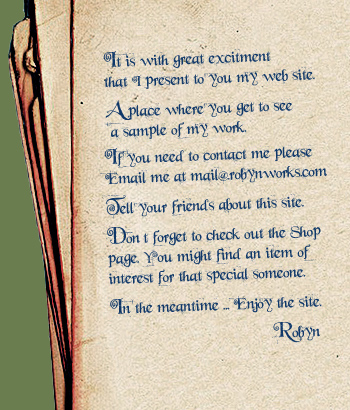 It is with great excitment
that I present to you my web site.
A place where you get to see
a sample of my work.
If you need to contact me please
Email me at mail@robynworks.com
Tell your friends about this site.
Don t forget to check out the Shop
page. You might find an item of
interest for that special someone.
In the meantime ... Enjoy the site.
Robyn